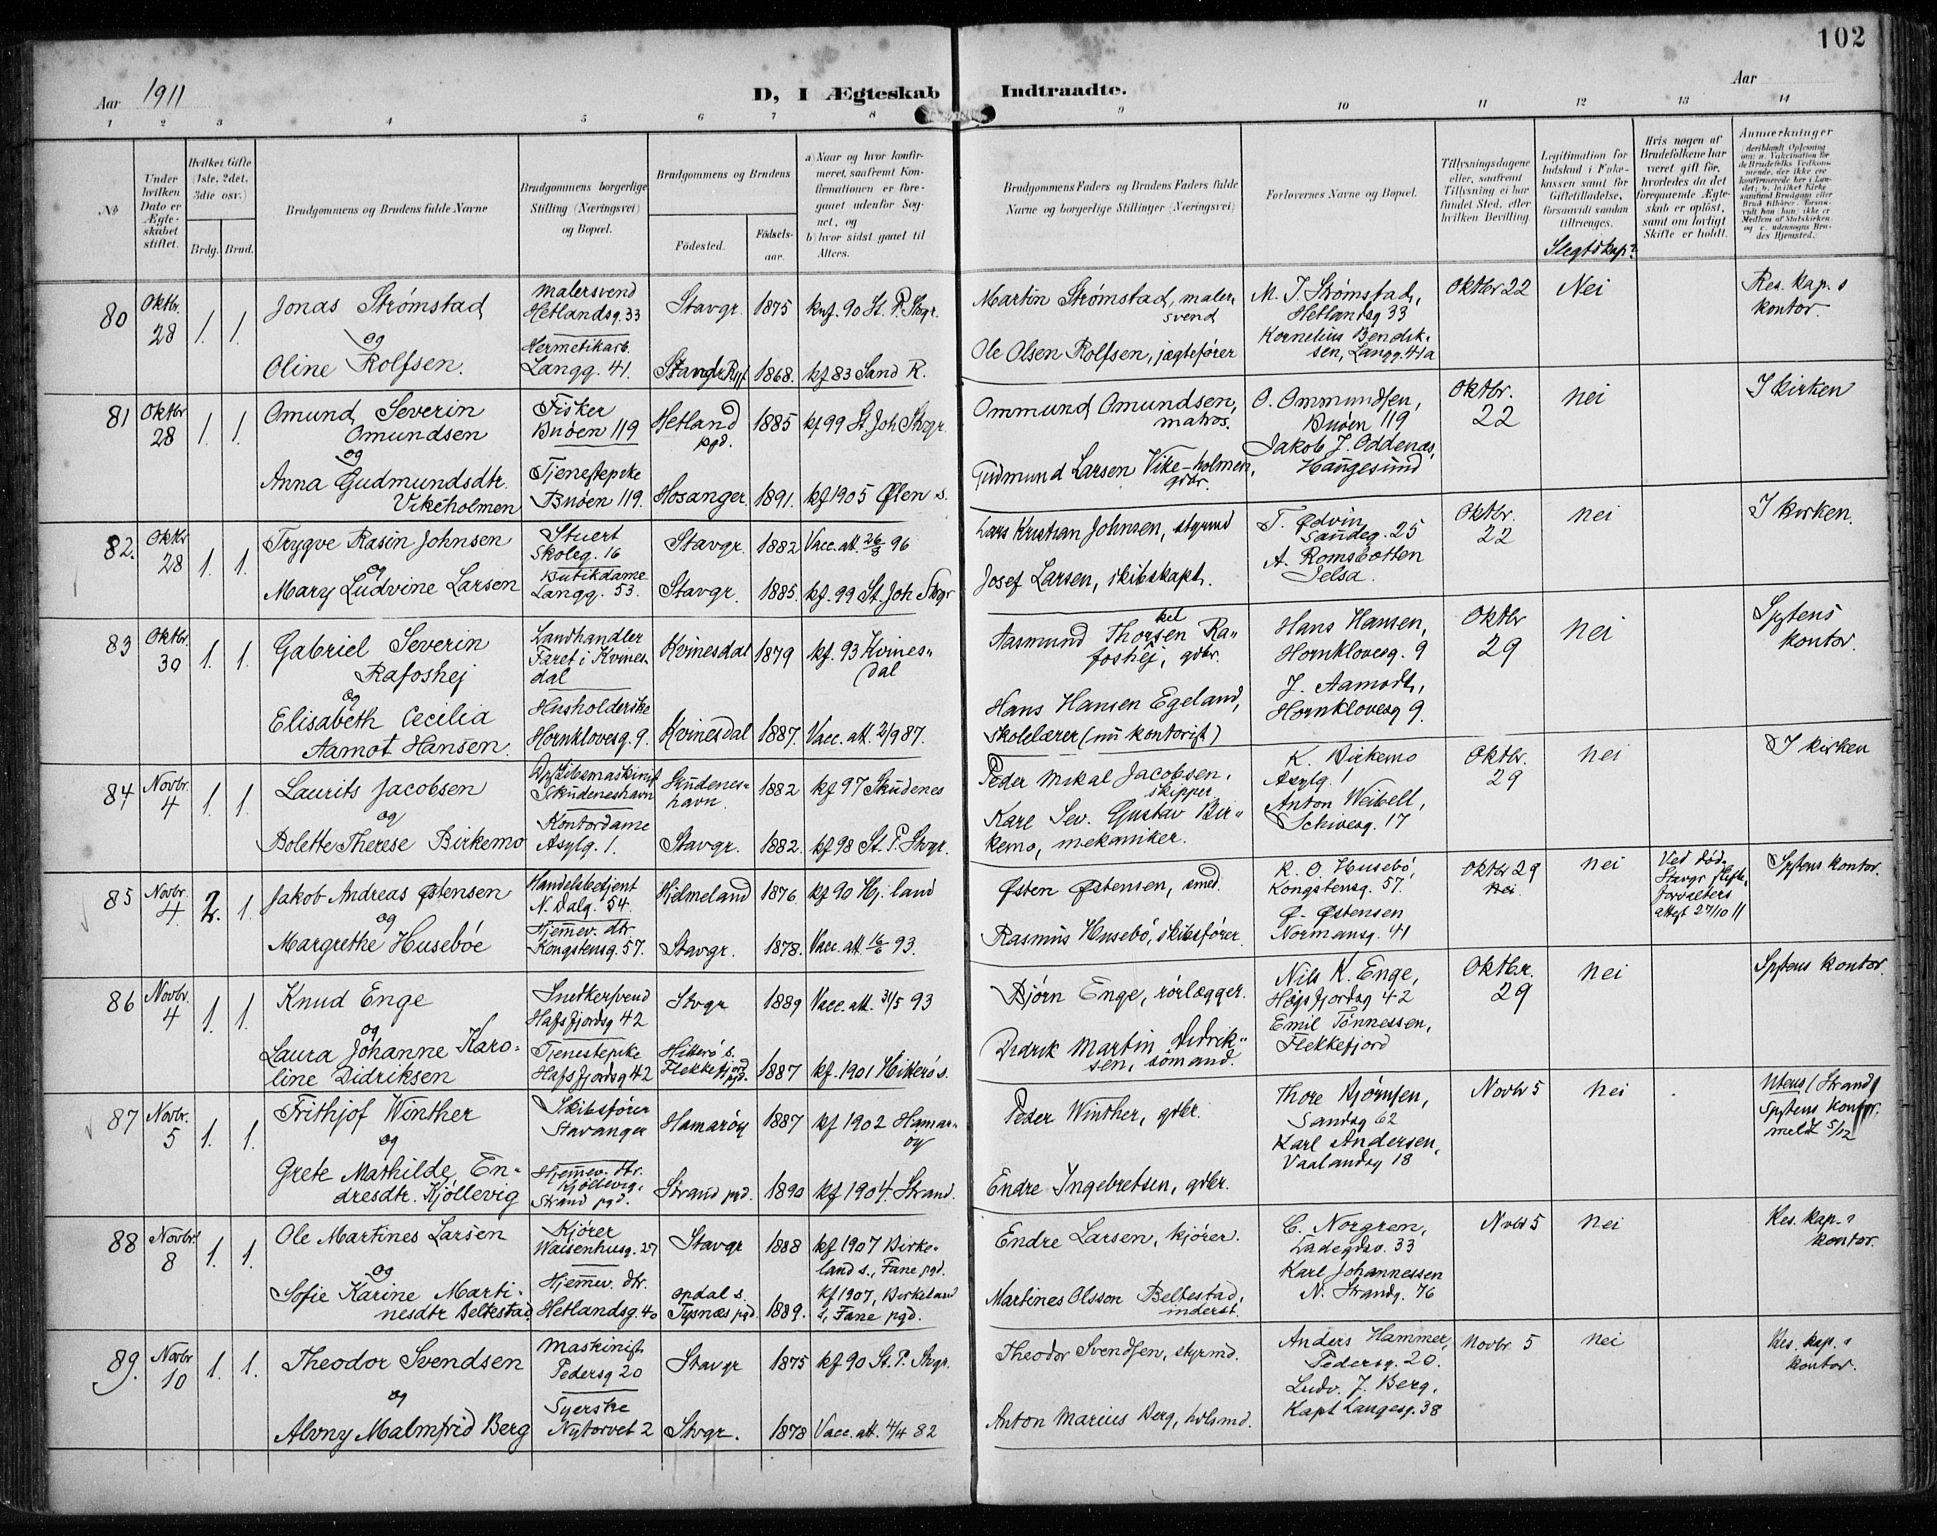 102
Aar 1911
D, I Ægteskab Indtraadte.
Aar
1 2 3 4 5 6 7 8 9 10 11 12 13 14
No
Under hvilken Dato er Ægteskabet stiftet.
Hvilket Gifte (1ste, 2det, 3die osv.)
Brdg. Brud.
Brudgommens og Brudens fulde Navne
Brudgommens borgerlige Stilling (Næringsvei) og Bopæl.
Brudgommens og Brudens
Fødested. Fødselsaar.
a) Naar og hvor konfirmeret, saafremt Konfirmationen er foregaaet udenfor Sognet, og
b) hvor sidst gaaet til Alters.
Brudgommens Faders og Brudens Faders fulde Navne og borgerlige Stillinger (Næringsvei)
Forlovernes Navne og Bopæl.
Tillysningsdagene eller, saafremt Tillysning ei har fundet Sted, efter hvilken Bevilling.
Legitimation for Indskud i Enkekassen samt for Giftetilladelse, forsaavidt saadan tiltrænges.
Slegtskap?
Hvis nogen af Brudefolkene har været gift før, hvorledes da det foregaaende Ægteskab er opløst, samt om lovligt Skifte er holdt.
Anmerkninger
80 Oktbr. 28 1. 1. Jonas Strømstad
og
Oline Rolfsen.
Malersvend Hetlandsg. 33
Hermetikarb. Langg. 41.
Stavgr. 1875 knf. 90 St. P. Stvgr.
1868. kf 83 Sand R.
Martin Strømstad, malersvend
Ole Olsen Rolfsen, jægtefører
M. J. Strømstad, Hetlandsg 33
Kornelius Bendiksen, Langg. 41a
Oktbr 22 Nei Res. kap.s kontor.
81 Oktbr 28 1. 1. Omund Severin Omundsen
og
Anna Gudmundsdtr. Vikeholmen
Fisker Buøen 119
Tjenestepike Buøen 119.
Hetland pgd. 1885 kf 99 St. Joh Stvgr.
Hosanger. 1891. kf 1905 Ølen s.
Ommund Omundsen, matros.
Gudmund Larsen Vikeholmen, gdbr.
O. Ommundsen, Buøen 119
Jakob J. Oddenas, Haugesund
Oktbr. 22 nei I kirken
82. Oktbr 28 1. 1. Trygve Rasin Johnsen
og
Mary Ludvine Larsen
Stuert Skoleg. 16
Butikdame Langg. 53.
Stavgr. 1882 Vacc. att. 26/3 96
Stavgr. 1885. kf. 99 St. Joh Stvgr
Lars Kristian Johnsen, styrmd
Josef Larsen, skibskapt.
T. Ødvin Saudeg. 25
A. Romsbotten Jelsa.
Oktbr. 22 nei I kirken.
83 Oktbr. 30 1. 1. Gabriel Severin Rafoshej
og
Elisabeth Cecilia Aamot Hansen.
Landhandler Faret i Kvinesdal
Husholderske Hornklovesg. 9.
Kvinesdal 1879 kf. 93 Kvinesdal
Kvinesdal 1887. Vacc. att. 2/9 87.
Aasmund Thorkelsen Rafoshej, gdbr.
Hans Hansen Egeland, Skolelærer (nu kontorist)
Hans Hansen, Hornklovesg. 9
J. Aamodt, Hornklovesg 9.
Oktbr 29 nei Sptens kontor.
84 Novbr. 4 1. 1. Laurits Jacobsen
og
Bolette Therese Birkemo
Skudeneshavn
Kontordame Asylg. 1.
Skudeneshavn. 1882 kf 97 Skudenes
Stavgr. 1882. kf 98 St. P. Stvgr.
Peder Mikal Jacobsen, skipper.
Karl Sev. Gustav Birkemo, mekaniker.
K. Birkemo Asylg. 1
Anton Weibell, Schivesg. 17
Oktbr. 29 nei I kirken
85 Novbr. 4. 2. 1. Jakob Andreas Østensen
og
Margrethe Husebøe
Handelsbetjent N. Dalg. 54.
Hjemmev. dtr. Kongstensg. 57.
Hjelmeland 1876 kf 90 Hj.land
Stavgr. 1878. Vacc. att 16/6 93.
Østen Østensen, smed.
Rasmus Husebø, skibsfører.
R. O. Husebø, Kongstensg. 57.
Ø. Østensen Normansg. 41
Oktbr 29 nei nei
Ved død. Stavgr skifteforvalters attest 27/10 11
Spstens kontor.
86 Novbr. 4 1. 1. Knud Enge
og
Laura Johanne Karoline Didriksen
Snedkersvend Hafsfjordsg 42
Tjenestepike Hafsfjordsg 42
Stvgr 1889 Vacc. att. 31/5 93
Hitterø s. Flekkefjord pgd. 1887 kf. 1901 Hitterø s.
Bjørn Enge, rørlægger.
Didrik Martin Didriksen, sømand.
Nils K. Enge, Hafsfjordsg 42
Emil Tønnessen, Flekkefjord
Oktbr. 29 nei Spstens kontor.
87 Novbr. 5 1. 1. Frithjof Winther
og
Grete Mathilde Endresdtr. Kjøllevig
Skibsfører Stavanger
Hjemmev. dtr. Kjøllevig, Strand pgd.
Hamarøy 1887 kf 1902 Hamarøy
Strand pgd. 1890 kf 1904. Strand.
Peder Winther, gdbr.
Endre Ingebretsen, gdbr.
Thore Bjørnsen, Sandsg 62
Karl Andersen, Vaalandsg 18
Novbr 5 nei Utens (Strand) Spstens kontor. meldt 5/12
88 Novbr. 8 1. 1. Ole Martines Larsen
og
Sofie Karine Martinesdtr Beltestad.
Kjører Waisenhusg. 27
Hjemmev. dtr. Hetlandsg. 40
Stavgr 1888 kf 1907 Birkeland s., Fane pgd.
Opdal s. Tysnæs pgd 1889. kf 1907, Birkeland s, Fane pgd.
Endre Larsen, kjører.
Martines Olsson Beltestad, inderst.
C. Norgren, Ladegdsv. 33
Karl Johannessen N. Strandg. 76
Novbr 5 nei Res. kap.s kontor.
89. Novbr 10 1. 1. Theodor Svendsen
og
Alvny Malmfrid Berg
Maskinist Pedersg 20
Syerske Nytorvet 2
Stavgr 1875 kf 90 St. P. Stvgr.
Stvgr. 1878 Vacc. att. 4/4 82
Theodor Svendsen, styrmd.
Anton Marius Berg,
Anders Hammer, Pedersg. 20.
Ludv. J. Berg, Kapt Langesg. 38
Novbr. 5 nei Res. kap.s kontor.